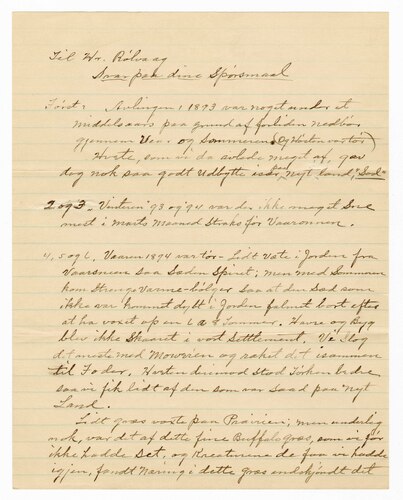 Til Mr. Rölvaag
Svar paa dine Spörsmaal
Först: Avlingen i 1893 var noget under et
middelsaars paa grund af forliden nedbör
gjennem Vaar og Sommeren (og Hösten var tör)
Hvete, som vi da avlede meget af, gav
dog nok saa godt Udbytte især "nyt land," "Sod"
2 og 3. Vinteren '93 og '94 var der ikke meget Sne
mest i Marts Maaned Straks för Vaaronnen.
4, 5 og 6. Vaaren 1894 var tör - Lidt Væte i Jorden fra
Vaarsneen saa Saden Spiret; men med Sommeren
kom Strenge Varme-bölger saa at den Sad som
ikke var kommet dybt i Jorden falmet bort efter
at ha voxet op en 6 a 8 Tommer. Havre og Byg
blev ikke Skaaret i vort Settlement. Vi Slog
det meste med Moweren og raket det isammen
til Foder. Hveten derimod Stod Törken bedre
saa vi fik lidt af den som var Saad paa Nyt
Land.
Lidt græs voxte paa Prairien; men underlig
nok, var det af dette fine Buffalogræs, som vi för
ikke hadde Set, og Kreaturene de faa vi hadde
igjen, fandt Næring i dette græs endskjöndt det